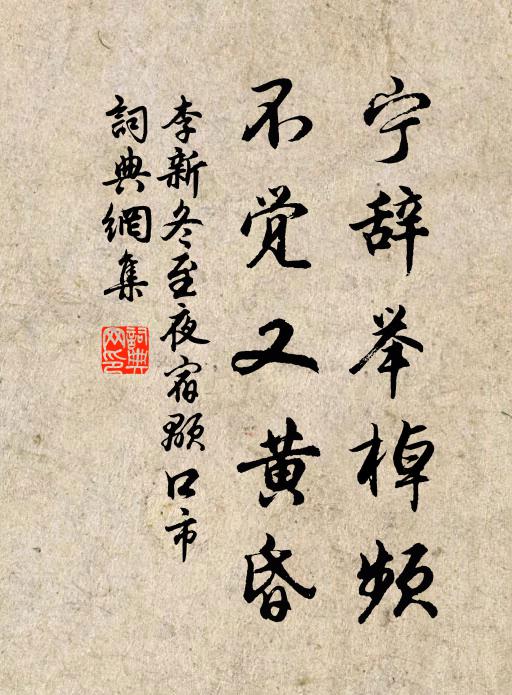 宁辞举棹频
不觉又黄昏
李新冬至夜宿颛口市
詞典網集
詞典网印